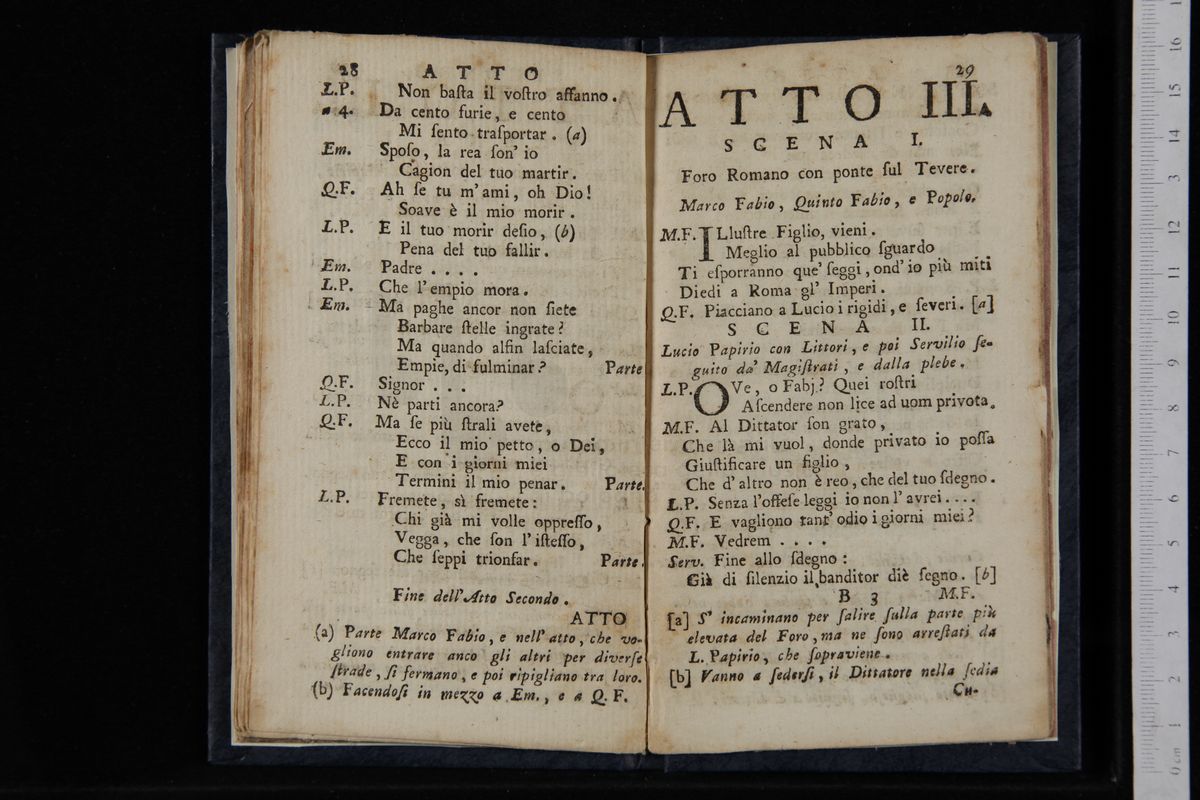 28 ATTO
L.P. Non baſta il voſtro affanno.
a 4. Da cento furie, e cento
Mi ſento traſportar. (a)
Em. Spoſo, la rea ſon' io
Cagion del tuo martir.
Q.F. Ah ſe tu m'ami, oh Dio!
Soave è il mio morir.
L.P. E il tuo morir deſio, (b)
Pena del tuo fallir.
Em. Padre . . . .
L.P. Che l'empio mora.
Em. Ma paghe ancor non ſiete
Barbare ſtelle ingrate?
Ma quando alfin laſciate,
Empie, di fulminar? Parte
Q.F. Signor . . .
L.P. Nè parti ancora?
Q.F. Ma ſe più ſtrali avete,
Ecco il mio petto, o Dei,
E con i giorni miei
Termini il mio penar. Parte.
L.P. Fremete, sì fremete:
Chi già mi volle oppreſſo,
Vegga, che ſon l'iſteſſo,
Che ſeppi trionfar. Parte.
Fine dell'Atto Secondo.
ATTO
(a) Parte Marco Fabio, e nell' atto, che vo-
gliono entrare anco gli altri per diverſe
ſtrade, ſi fermano, e poi ripigliano tra loro.
(b) Facendoſi in mezzo a Em., e a Q. F.
29
ATTO III.
SCENA I.
Foro Romano con ponte ſul Tevere.
Marco Fabio, Quinto Fabio, e Popolo.
M.F. ILluſtre Figlio, vieni.
Meglio al pubblico ſguardo
Ti eſporranno que' ſeggi, ond' io più miti
Diedi a Roma gl' Imperi.
Q.F. Piacciano a Lucio i rigidi, e ſeveri. [a]
SCENA II.
Lucio Papirio con Littori, e poi Servilio ſe-
guito da' Magiſtrati, e dalla plebe.
L.P. OVe, o Fabj? Quei roſtri
Aſcendere non lice ad uom privota.
M.F. Al Dittator ſon grato,
Che là mi vuol, donde privato io poſſa
Giuſtificare un figlio,
Che d'altro non è reo, che del tuo ſdegno.
L.P. Senza l'offeſe leggi io non l'avrei....
Q.F. E vagliono tant' odio i giorni miei?
M.F. Vedrem . . . .
Serv. Fine allo ſdegno:
Già di ſilenzio il banditor diè ſegno. [b]
B 3 M.F.
[a] S' incaminano per ſalire ſulla parte più
elevata del Foro, ma ne ſono arreſtati da
L. Papirio, che ſopraviene.
[b] Vanno a ſederſi, il Dittatore nella ſedia
Cu-
0 cm 1 2 3 4 5 6 7 8 9 10 11 12 13 14 15 16